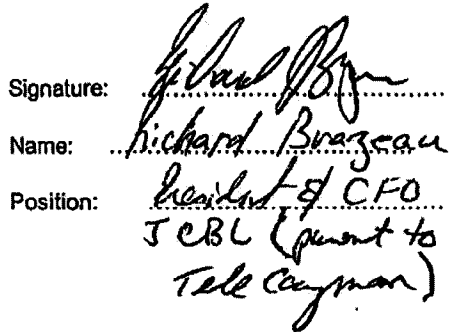 Signature:
Name: Richard Brazeau
Position: President & CFO
JCBL (parent to
Tele Cayman)